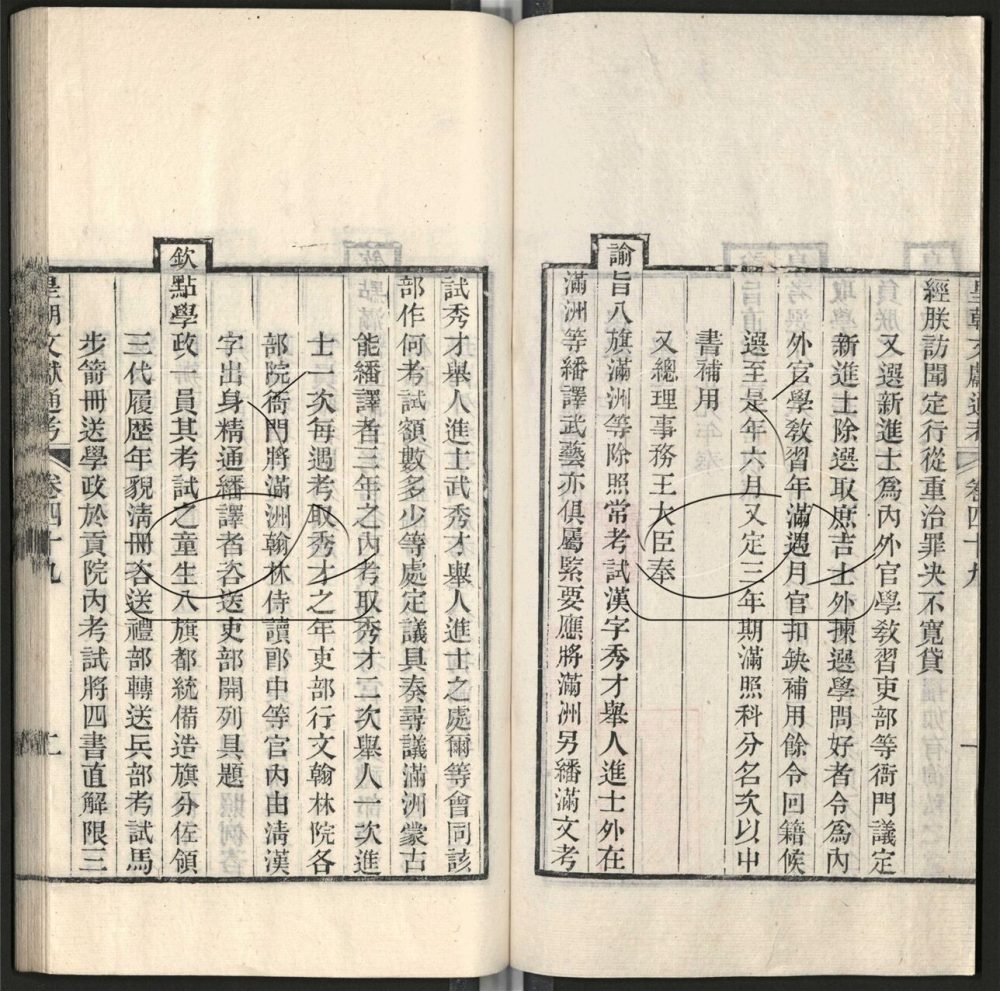 皇朝文獻通考 卷四十九 一
經朕訪聞定行從重治罪决不寬貸
又選新進士爲內外官學敎習吏部等衙門議定
新進士除選取庶吉士外揀選學問好者令爲內
外官學敎習年滿遇月官扣缺補用餘令回籍候
選至是年六月又定三年期滿照科分名次以中
書補用
又總理事務王大臣奉
諭旨八旗滿洲等除照常考試漢字秀才舉人進士外在
滿洲等繙譯武藝亦俱屬緊要應將滿洲另繙滿文考
試秀才舉人進士武秀才舉人進士之處爾等會同該
部作何考試額數多少等處定議具奏尋議滿洲蒙古
能繙譯者三年之內考取秀才二次舉人一次進
士一次每遇考取秀才之年吏部行文翰林院各
部院衙門將滿洲翰林侍讀郎中等官內由淸漢
字出身精通繙譯者咨送吏部開列具題
欽點學政一員其考試之童生八旗都統備造旗分佐領
三代履歷年貌淸冊咨送禮部轉送兵部考試馬
步箭冊送學政於貢院內考試將四書直解限三
皇朝文獻通考 卷四十九